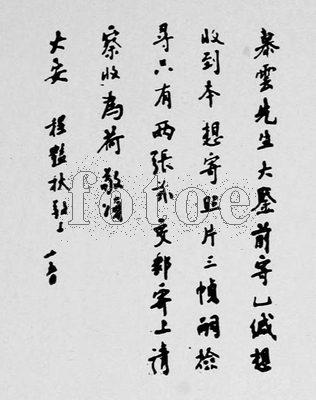 慕雲先生大鑒前寄乙缄想
收到本想寄照片三幀嗣檢
尋只有兩張茲交郵寄上請
察收為荷敬頌
大安 程豔秋敬上
fotoe